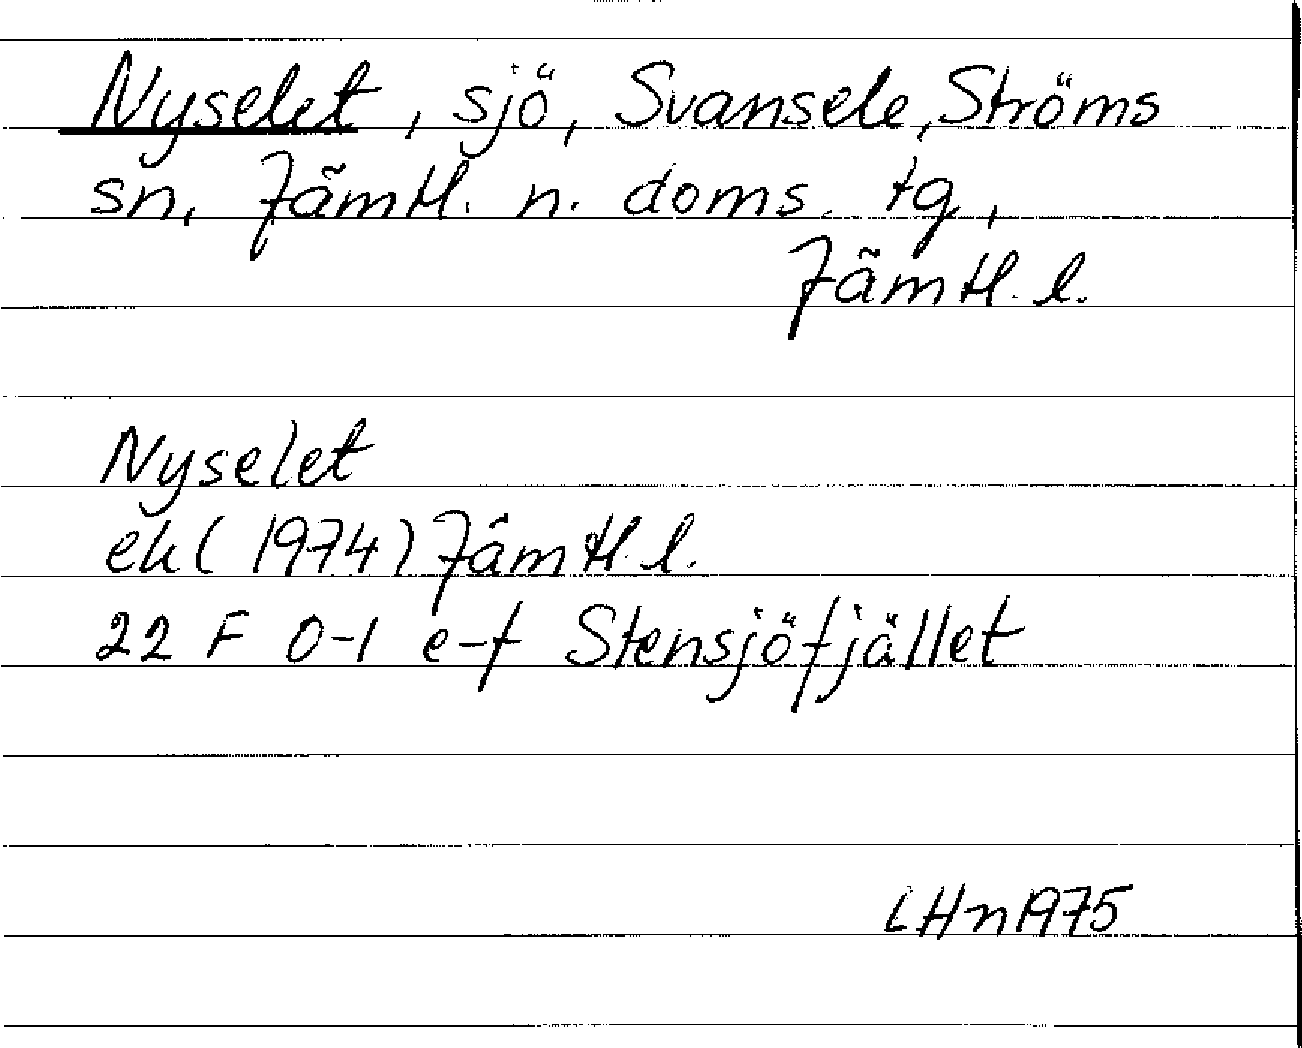 Nyselet, sjö, Svansele, Ströms
sn, Jämtl. n. doms. tg,
Jämtl. l.
Nyselet
ek (1974) Jämtl. l.
22 F 0-1 e-f Stensjöfjället
LHn 1975